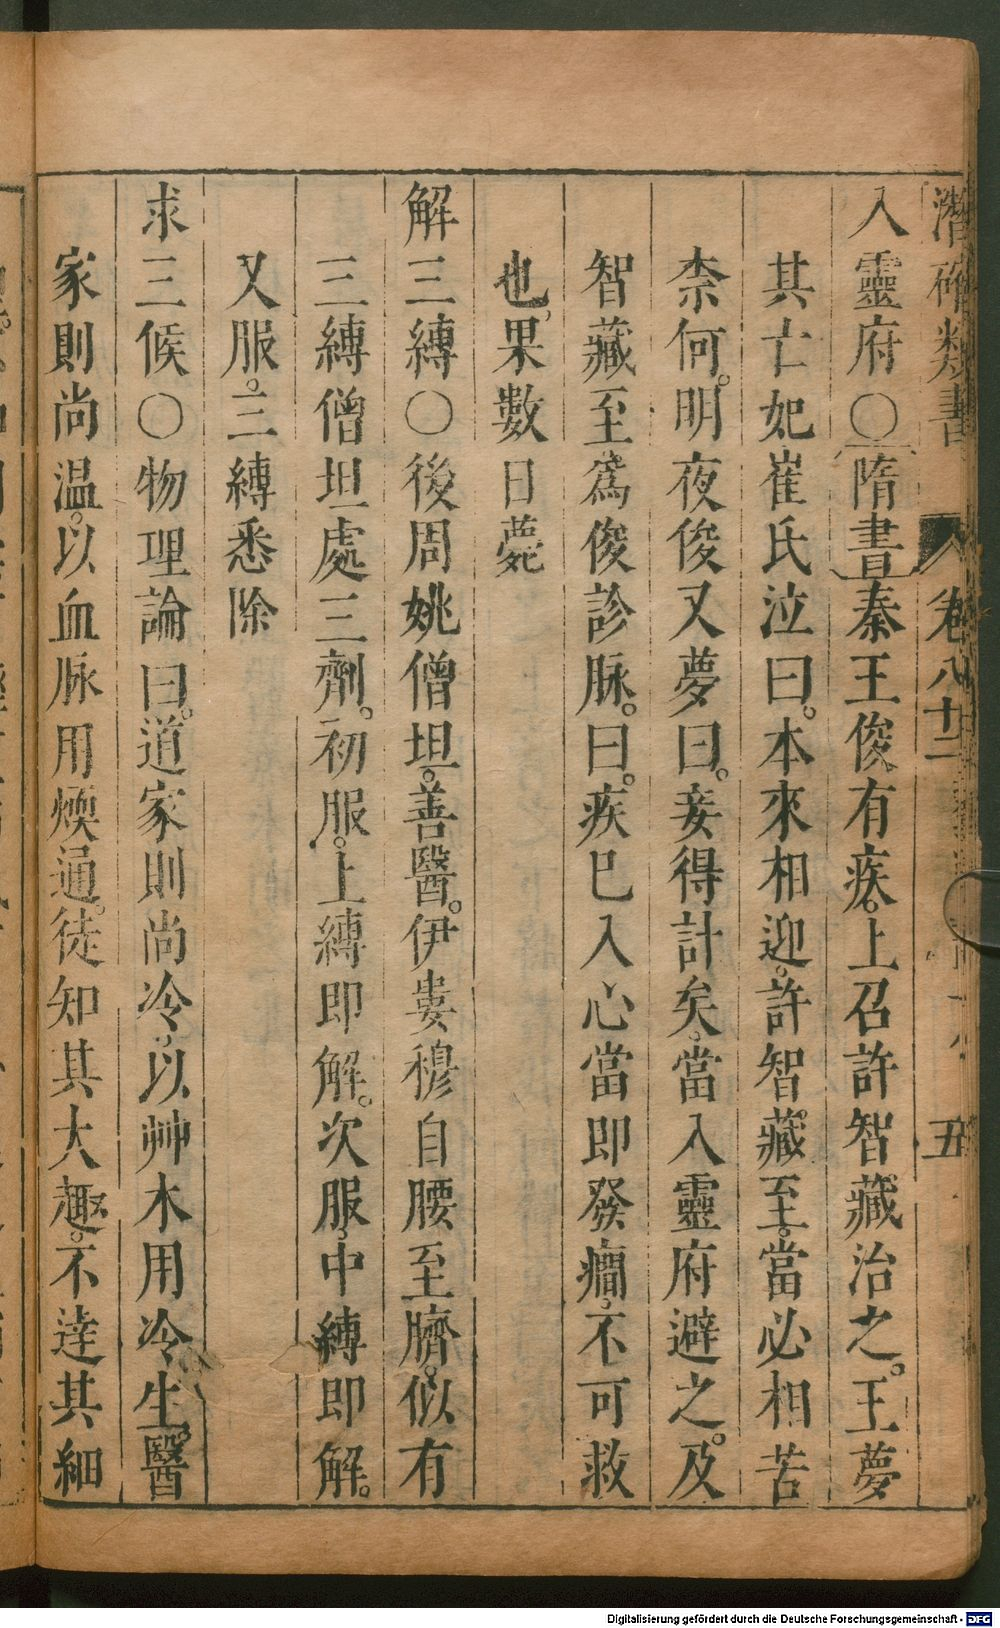 潛確類書 卷八十二 五
入靈府○隋書秦王俊有疾上召許智藏治之。王夢
其亡妃崔氏泣曰。本來相迎。許智藏至。當必相苦
柰何。明夜俊又夢曰。妾得計矣。當入靈府避之。及
智藏至。爲俊診脉。曰。疾巳入心當即發癇。不可救
也。果數日薨
解三縛○後周姚僧坦。善醫。伊婁穆自腰至臍。似有
三縛僧坦處三劑。初服。上縛即解。次服。中縛即解。
又服。三縛悉除
求三候○物理論曰。道家則尚冷。以艸木用冷生。醫
家則尚温。以血脉用煗通。徒知其大趣。不逹其細
Digitalisierung gefördert durch die Deutsche Forschungsgemeinschaft - DFG